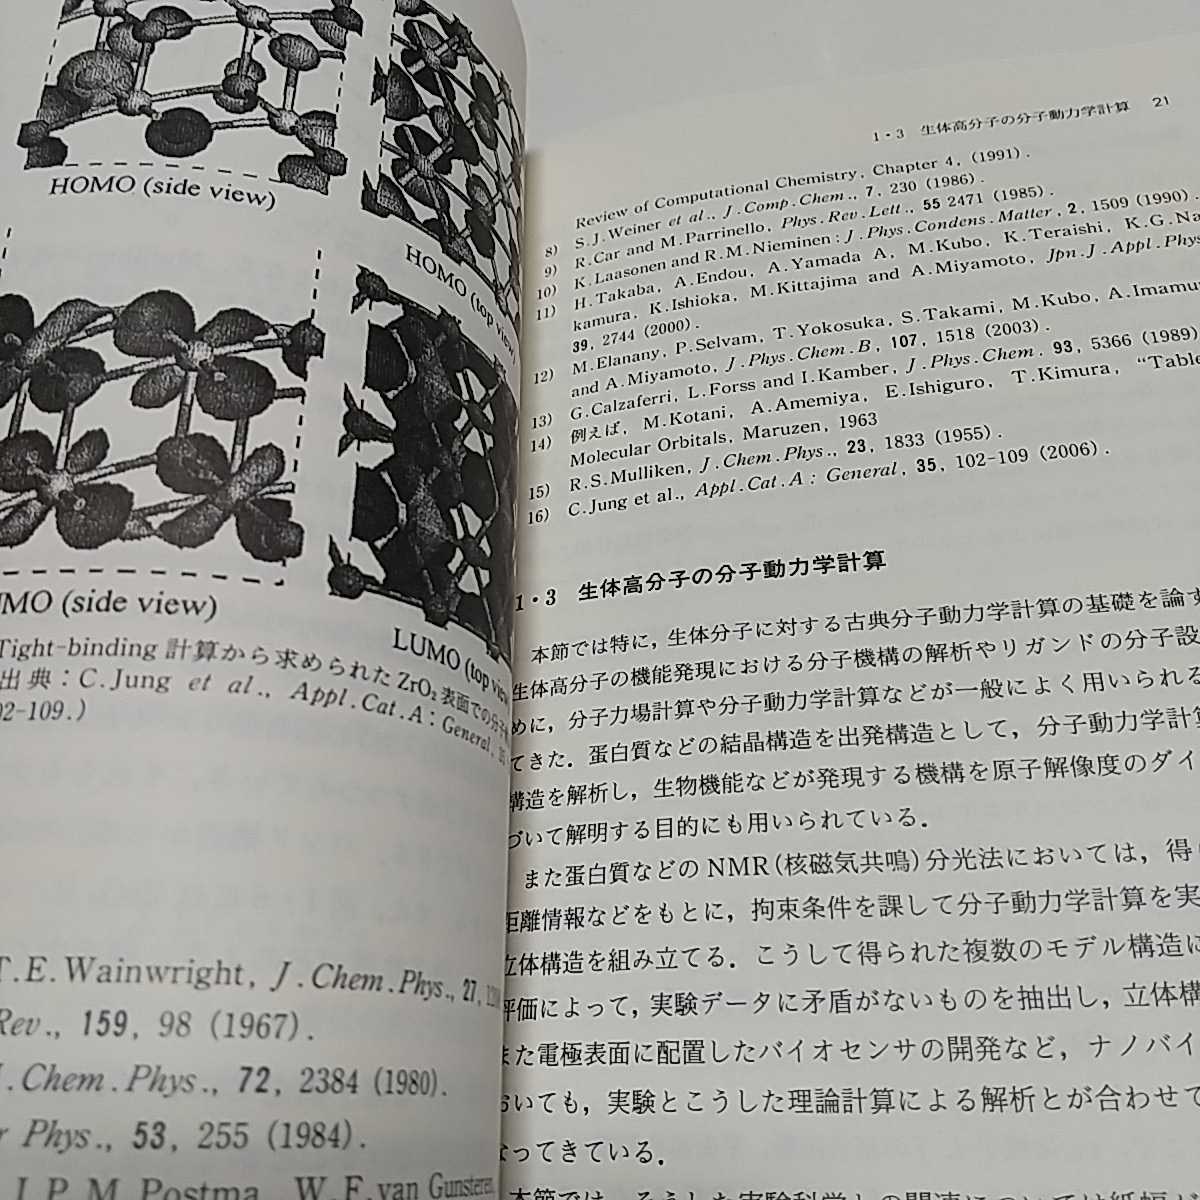 HOMO (side view)
HOMO (top view)
MO (side view)
LUMO (top view)
Tight-binding 計算から求められた ZrO₂ 表面での分子
出典：C.Jung et al., Appl.Cat.A: General,
02-109.)
T.E.Wainwright, J.Chem.Phys., 27,
Rev., 159, 98 (1967).
J.Chem.Phys., 72, 2384 (1980).
r Phys., 53, 255 (1984).
J.P.M.Postma, W.F.van Gunsteren,
1・3 生体高分子の分子動力学計算 21
Review of Computational Chemistry, Chapter 4, (1991).
8) S.J.Weiner et al., J.Comp.Chem., 7, 230 (1986).
9) R.Car and M.Parrinello, Phys.Rev.Lett., 55 2471 (1985).
10) K.Laasonen and R.M.Nieminen: J.Phys.Condens.Matter, 2, 1509 (1990).
11) H.Takaba, A.Endou, A.Yamada A, M.Kubo, K.Teraishi, K.G.Na
kamura, K.Ishioka, M.Kittajima and A.Miyamoto, Jpn.J.Appl.Phys
39, 2744 (2000).
12) M.Elanany, P.Selvam, T.Yokosuka, S.Takami, M.Kubo, A.Imamu
and A.Miyamoto, J.Phys.Chem.B, 107, 1518 (2003).
13) G.Calzaferri, L.Forss and I.Kamber, J.Phys.Chem. 93, 5366 (1989)
14) 例えば, M.Kotani, A.Amemiya, E.Ishiguro, T.Kimura, “Table
Molecular Orbitals, Maruzen, 1963
15) R.S.Mulliken, J.Chem.Phys., 23, 1833 (1955).
16) C.Jung et al., Appl.Cat.A: General, 35, 102-109 (2006).
1・3 生体高分子の分子動力学計算
本節では特に，生体分子に対する古典分子動力学計算の基礎を論す
生体高分子の機能発現における分子機構の解析やリガンドの分子設
めに，分子力場計算や分子動力学計算などが一般によく用いられる
てきた．蛋白質などの結晶構造を出発構造として，分子動力学計算
構造を解析し，生物機能などが発現する機構を原子解像度のダイ
づいて解明する目的にも用いられている．
また蛋白質などの NMR（核磁気共鳴）分光法においては，得
距離情報などをもとに，拘束条件を課して分子動力学計算を実
立体構造を組み立てる．こうして得られた複数のモデル構造に
評価によって，実験データに矛盾がないものを抽出し，立体構
また電極表面に配置したバイオセンサの開発など，ナノバイ
おいても，実験とこうした理論計算による解析とが合わせて
なってきている．
本節では，そうした実験科学との関連については紙幅